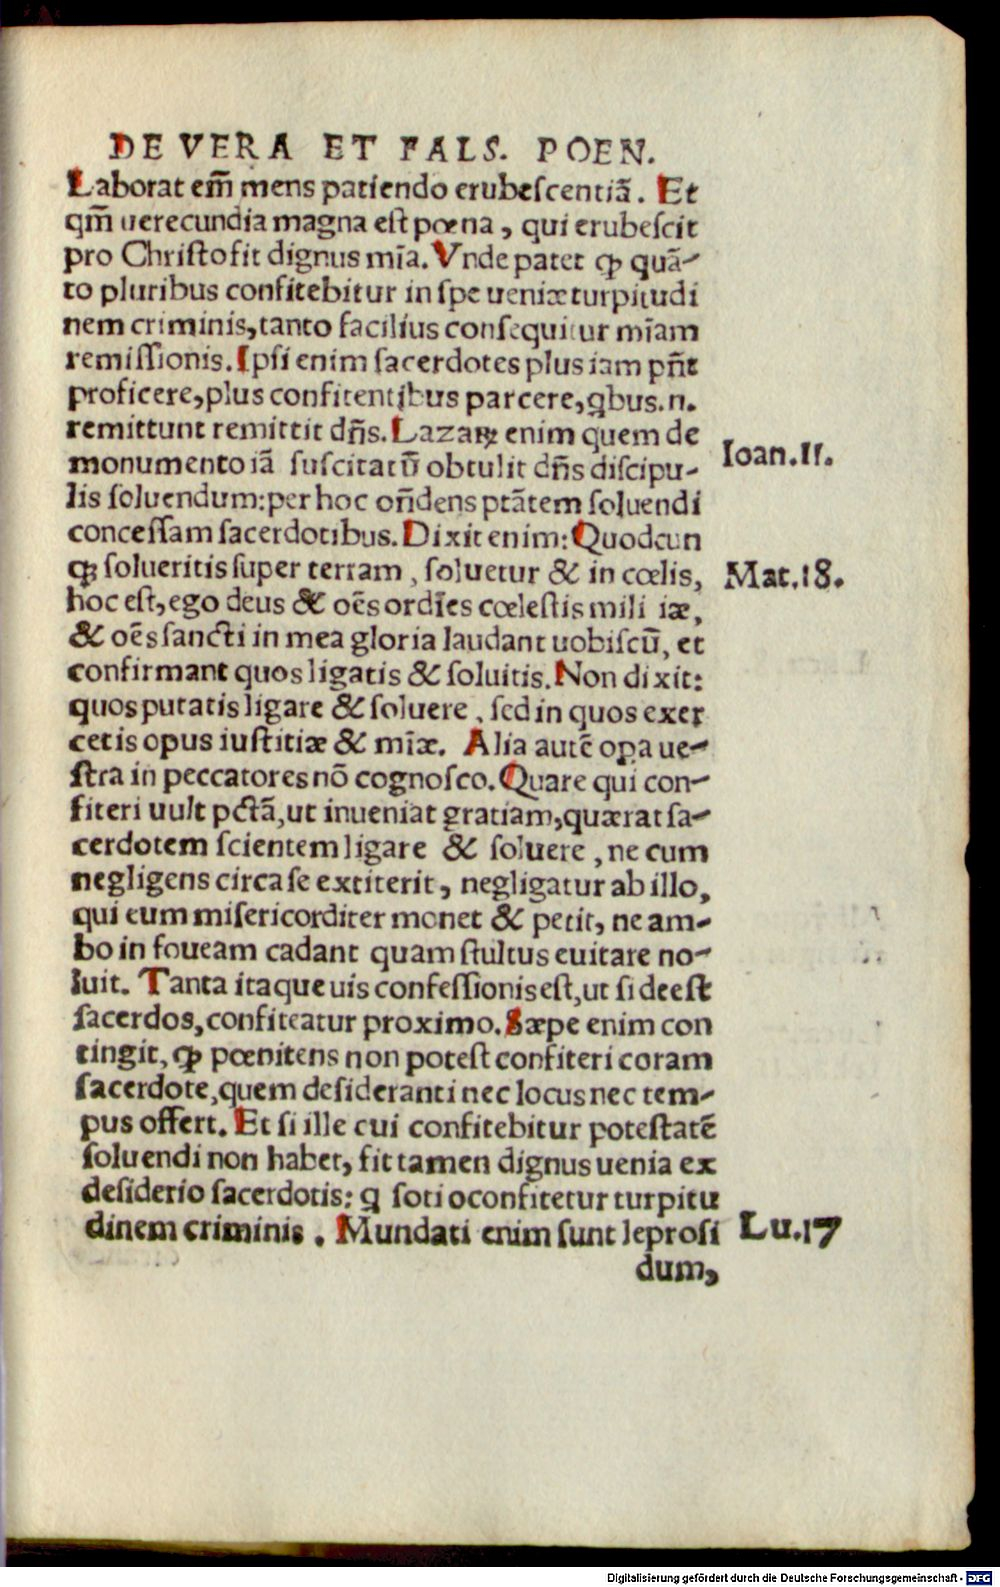 DE VERA ET FALS. POEN.
Laborat em̃ mens patiendo erubescentiã. Et
qm̃ uerecundia magna est pœna, qui erubescit
pro Christo fit dignus mĩa. Vnde patet ꝙ quã-
to pluribus confitebitur in spe ueniæ turpitudi
nem criminis, tanto facilius consequitur mĩam
remissionis. Ipsi enim sacerdotes plus iam pñt
proficere, plus confitentibus parcere, qbus.n.
remittunt remittit dñs. Lazaꝝ enim quem de
monumento iã suscitatũ obtulit dñs discipu-
Ioan.11.
lis soluendum: per hoc oñdens ptãtem soluendi
concessam sacerdotibus. Dixit enim: Quodcun
qꝫ solueritis super terram, soluetur & in cœlis,
Mat.18.
hoc est, ego deus & oẽs ordĩes cœlestis mili iæ,
& oẽs sancti in mea gloria laudant uobiscũ, et
confirmant quos ligatis & soluitis. Non dixit:
quos putatis ligare & soluere, sed in quos exer
cetis opus iustitiæ & mĩæ. Alia autẽ oꝑa ue-
stra in peccatores nõ cognosco. Quare qui con-
fiteri uult pctã, ut inueniat gratiam, quærat sa-
cerdotem scientem ligare & soluere, ne cum
negligens circa se extiterit, negligatur ab illo,
qui eum misericorditer monet & petit, ne am-
bo in foueam cadant quam stultus euitare no-
luit. Tanta itaque uis confessionis est, ut si deest
sacerdos, confiteatur proximo. Sæpe enim con
tingit, ꝙ pœnitens non potest confiteri coram
sacerdote, quem desideranti nec locus nec tem-
pus offert. Et si ille cui confitebitur potestatẽ
soluendi non habet, fit tamen dignus uenia ex
desiderio sacerdotis: q soti o confitetur turpitu
dinem criminis. Mundati enim sunt leprosi
Lu.17
dum,
Digitalisierung gefördert durch die Deutsche Forschungsgemeinschaft - DFG